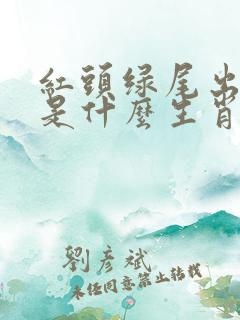 紅頭绿尾出
是什麼生肖
劉彦斌
未经同意禁止转载